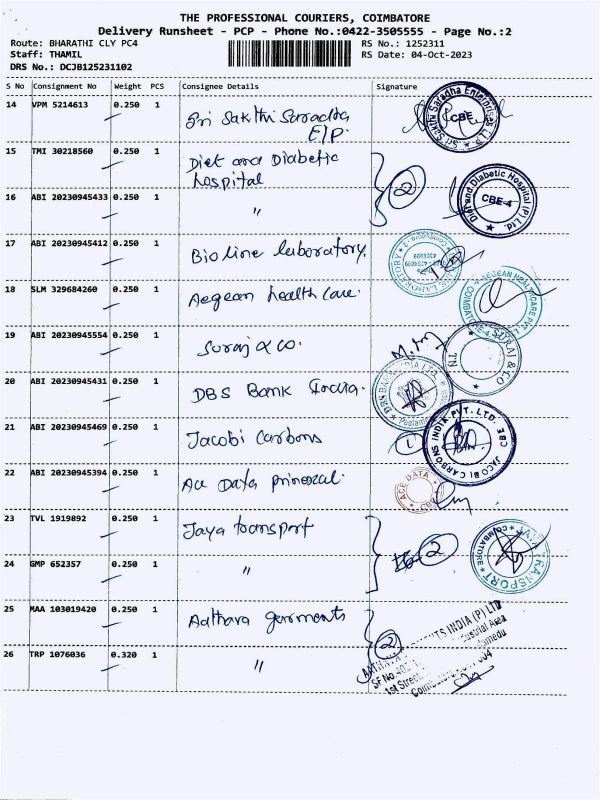 THE PROFESSIONAL COURIERS, COIMBATORE
Delivery Runsheet - PCP - Phone No.:0422-3505555 - Page No.:2
Route: BHARATHI CLY PC4 RS No.: 1252311
Staff: THAMIL RS Date: 04-Oct-2023
DRS No.: DCJB125231102
S No Consignment No Weight PCS Consignee Details Signature
14 VPM 5214613 0.250 1 Sri Sakthi Saradha
E/P. Sri Sakthi Saradha Enterprises LLP CBE
15 TMI 30218560 0.250 1 Diet and Diabetic
hospital 2 Diet and Diabetic Hospital (P) Ltd. CBE-4
16 ABI 20230945433 0.250 1 "
17 ABI 20230945412 0.250 1 Bio line laboratory. LABORATORY
18 SLM 329684260 0.250 1 Aegean health care. AEGEAN HEALTHCARE PVT. COIMBATORE-4
19 ABI 20230945554 0.250 1 Suraj & co. SURAJ & CO TN
20 ABI 20230945431 0.250 1 DBS Bank India. DBS BANK INDIA LTD.
21 ABI 20230945469 0.250 1 Jacobi Carbons 1 JACOBI CARBONS INDIA PVT. LTD. CBE
22 ABI 20230945394 0.250 1 Ace Data ACE DATA
23 TVL 1919892 0.250 1 Jaya transport 2 TRANSPORT COIMBATORE
24 GMP 652357 0.250 1 "
25 MAA 103019420 0.250 1 Aathava garments 2 INDIA (P) LTD
SF No. Industrial Area
1st Street
26 TRP 1076036 0.320 1 "